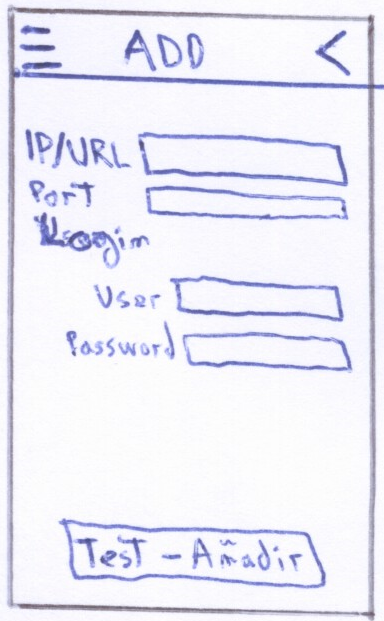 ADD
IP/URL
Port
Login
User
Password
Test - Añadir